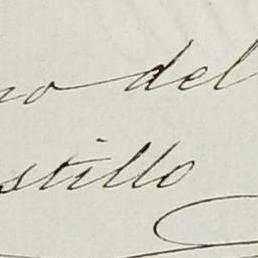 no del
stillo